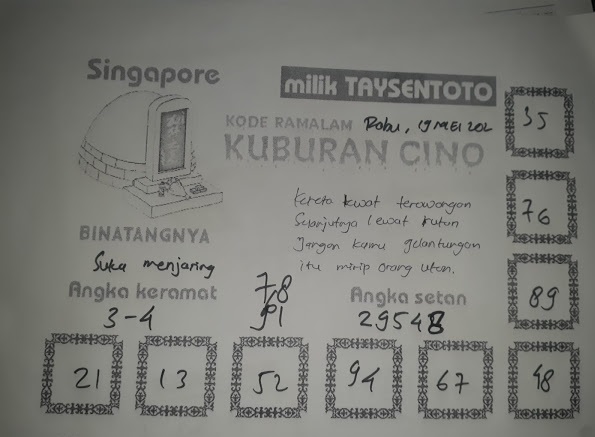 Singapore
milik TAYSENTOTO
KODE RAMALAM Rabu, 19 MEI 202
KUBURAN CINO
35
76
89
48
Kereta lewat terowongan
Selanjutnya lewat hutan
Jangan kamu gelantungan
itu mirip orang utan.
BINATANGNYA
Suka menjaring
Angka keramat
3-4
78
91
Angka setan
29548
21 13 52 94 67